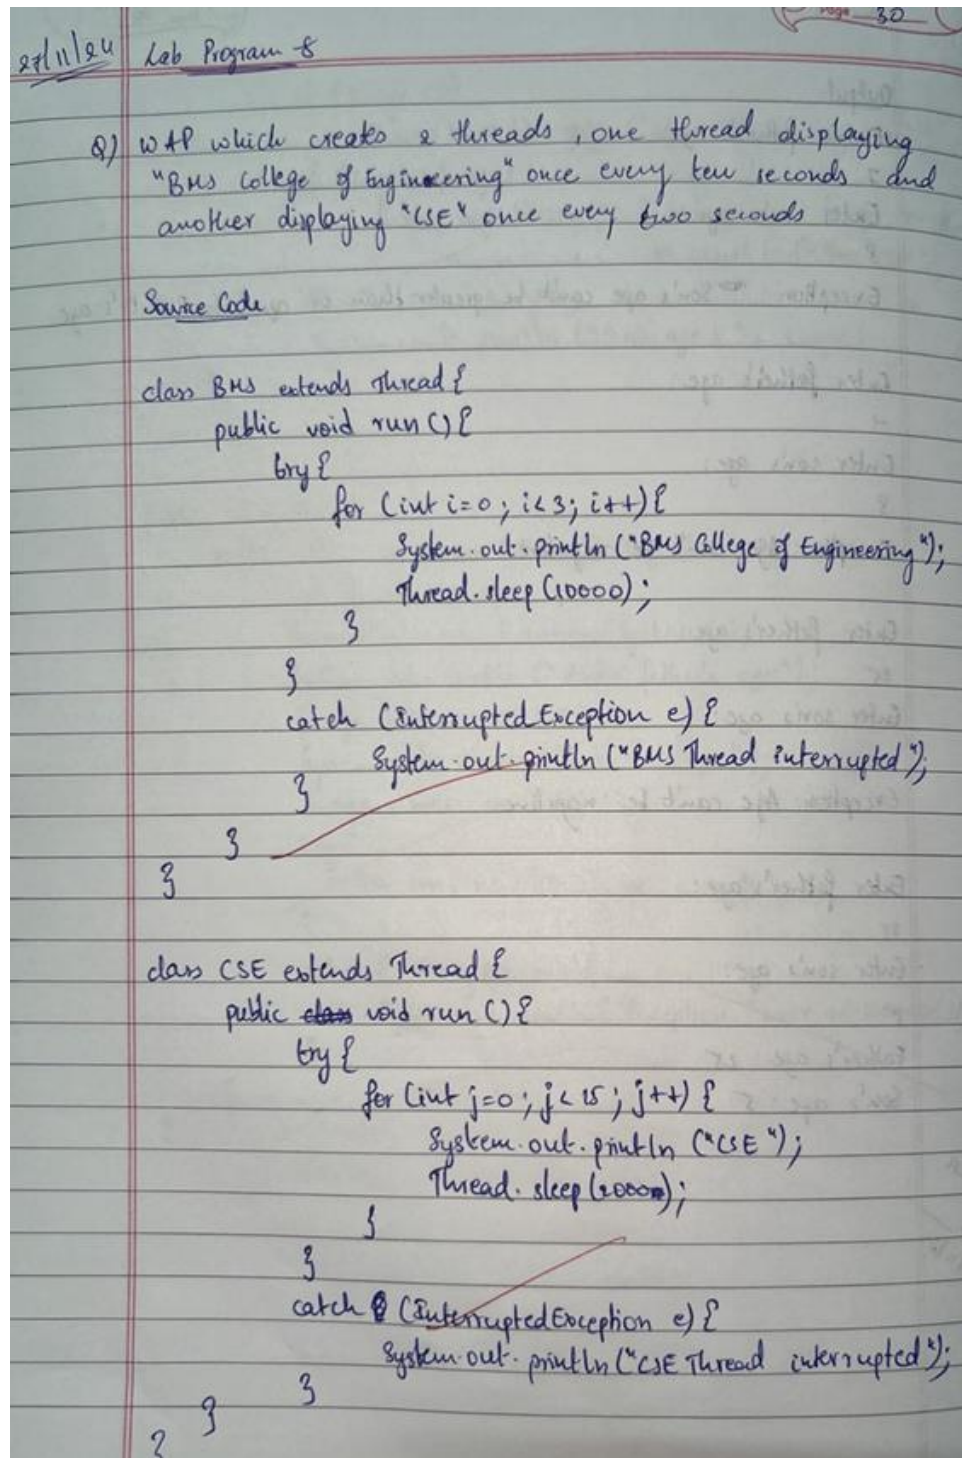 Page 30
27/11/24 Lab Program-8
Q) WAP which creates 2 threads, one thread displaying
"BMS College of Engineering" once every ten seconds and
another displaying "CSE" once every two seconds
Source Code
class BMS extends Thread {
public void run () {
try {
for (int i=0; i<3; i++) {
System.out.println ("BMS College of Engineering");
Thread.sleep (10000);
}
}
catch (InterruptedException e) {
System.out.println ("BMS Thread interrupted");
}
}
}
class CSE extends Thread {
public class void run () {
try {
for (int j=0; j<15; j++) {
System.out.println ("CSE");
Thread.sleep (2000);
}
}
catch (InterruptedException e) {
System.out.println ("CSE Thread interrupted");
}
}
}